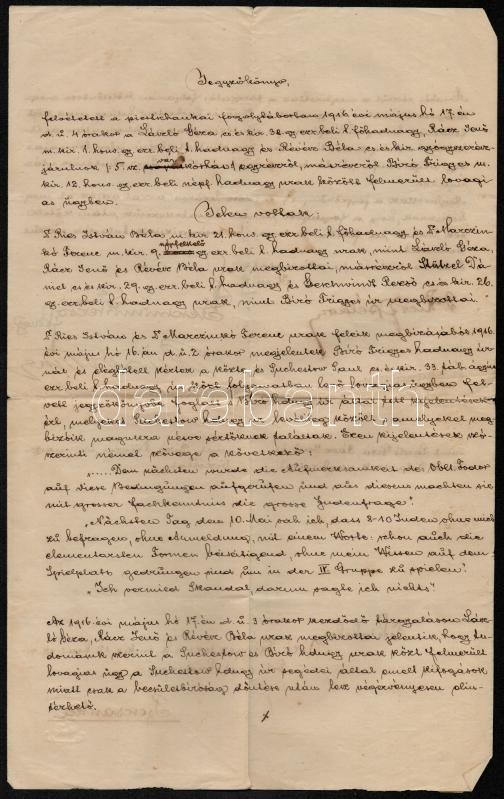 Jegyzőkönyv,
felvétetett a piestchankai fogolytáborban 1916 évi május hó 17.én
d.u. 4 órakor a László Géza cs és kir. 32. gy. err. beli t. főhadnagy, Rácz Jenő
m. kir. 1. honv. gy. err. beli t. hadnagy és Révész Béla cs. és kir. gyógyszerész-
járulnok /: 5. sz. várkórház :/ egyrészről, másrészről Biró Frigyes m.
kir. 12. honv. gy. err. beli népf. hadnagy urak között felmerült lovagi-
as ügyben.
Jelen voltak:
Dr Ries István Béla m. kir. 21. honv. gy. err. beli t. főhadnagy és Dr Marczin-
kó Ferenc m. kir. 9. népfelkelő gy. err. beli t. hadnagy urak, mint László Géza,
Rácz Jenő és Révész Béla urak megbízottai, másrészről Stükel Dá-
niel cs és kir. 29. gy. err. beli t. hadnagy és Gschwindt Rezső cs és kir. 26.
gy. err. beli t. hadnagy urak, mint Biró Frigyes úr megbízottai.
Dr Ries István és Dr Marczinkó Ferenc urak feleik megbízásából 1916.
évi május hó 16.án d.u. 2 órakor megjelentek Biró Frigyes hadnagy úr-
nál és elégtételt kértek a közte és Suchestow Paul cs és kir. 33. táb. ágyús
err. beli t. hadnagy úr közt folyamatban levő lovagias ügyben fel-
vett jegyzőkönyvbe foglalt Biró hdngy úr által tett kijelentések-
ért, melyeket Suchestow hdngy úr levélileg közölt s amelyeket meg-
bízóik magukra nézve sértőknek találtak. Ezen kijelentések szó-
szerinti német szövege a következő:
„..... Dem nächsten wurde die Aufmerksamkeit des Oblt. Fodor
auf diese Bedingungen aufgerufen und aus diesem machten sie
mit grosser Fachkenntniss die grosse Judenfrage."
„Nächsten Tag den 10. Mai sah ich, dass 8-10 Juden ohne mich
zu befragen, ohne Anmeldung, mit einem Worte: schon auch die
elementarsten Formen beseitigend, ohne mein Wissen auf den
Spielplatz gedrungen sind um in der IV Gruppe zu spielen."
„Ich vermied Skandal, darum sagte ich nichts."
Az 1916 évi május hó 17.én d.u. 3 órakor kezdődő tárgyaláson Lász-
ló Géza, Rácz Jenő és Révész Béla urak megbízottai jelentik, hogy tu-
domásuk szerint a Suchestow és Biró hdngy urak közt felmerült
lovagias ügy a Suchestow hdngy úr segédei által emelt kifogások
miatt csak a becsületbíróság döntése után lesz végérvényesen elin-
tézhető.
darabanth